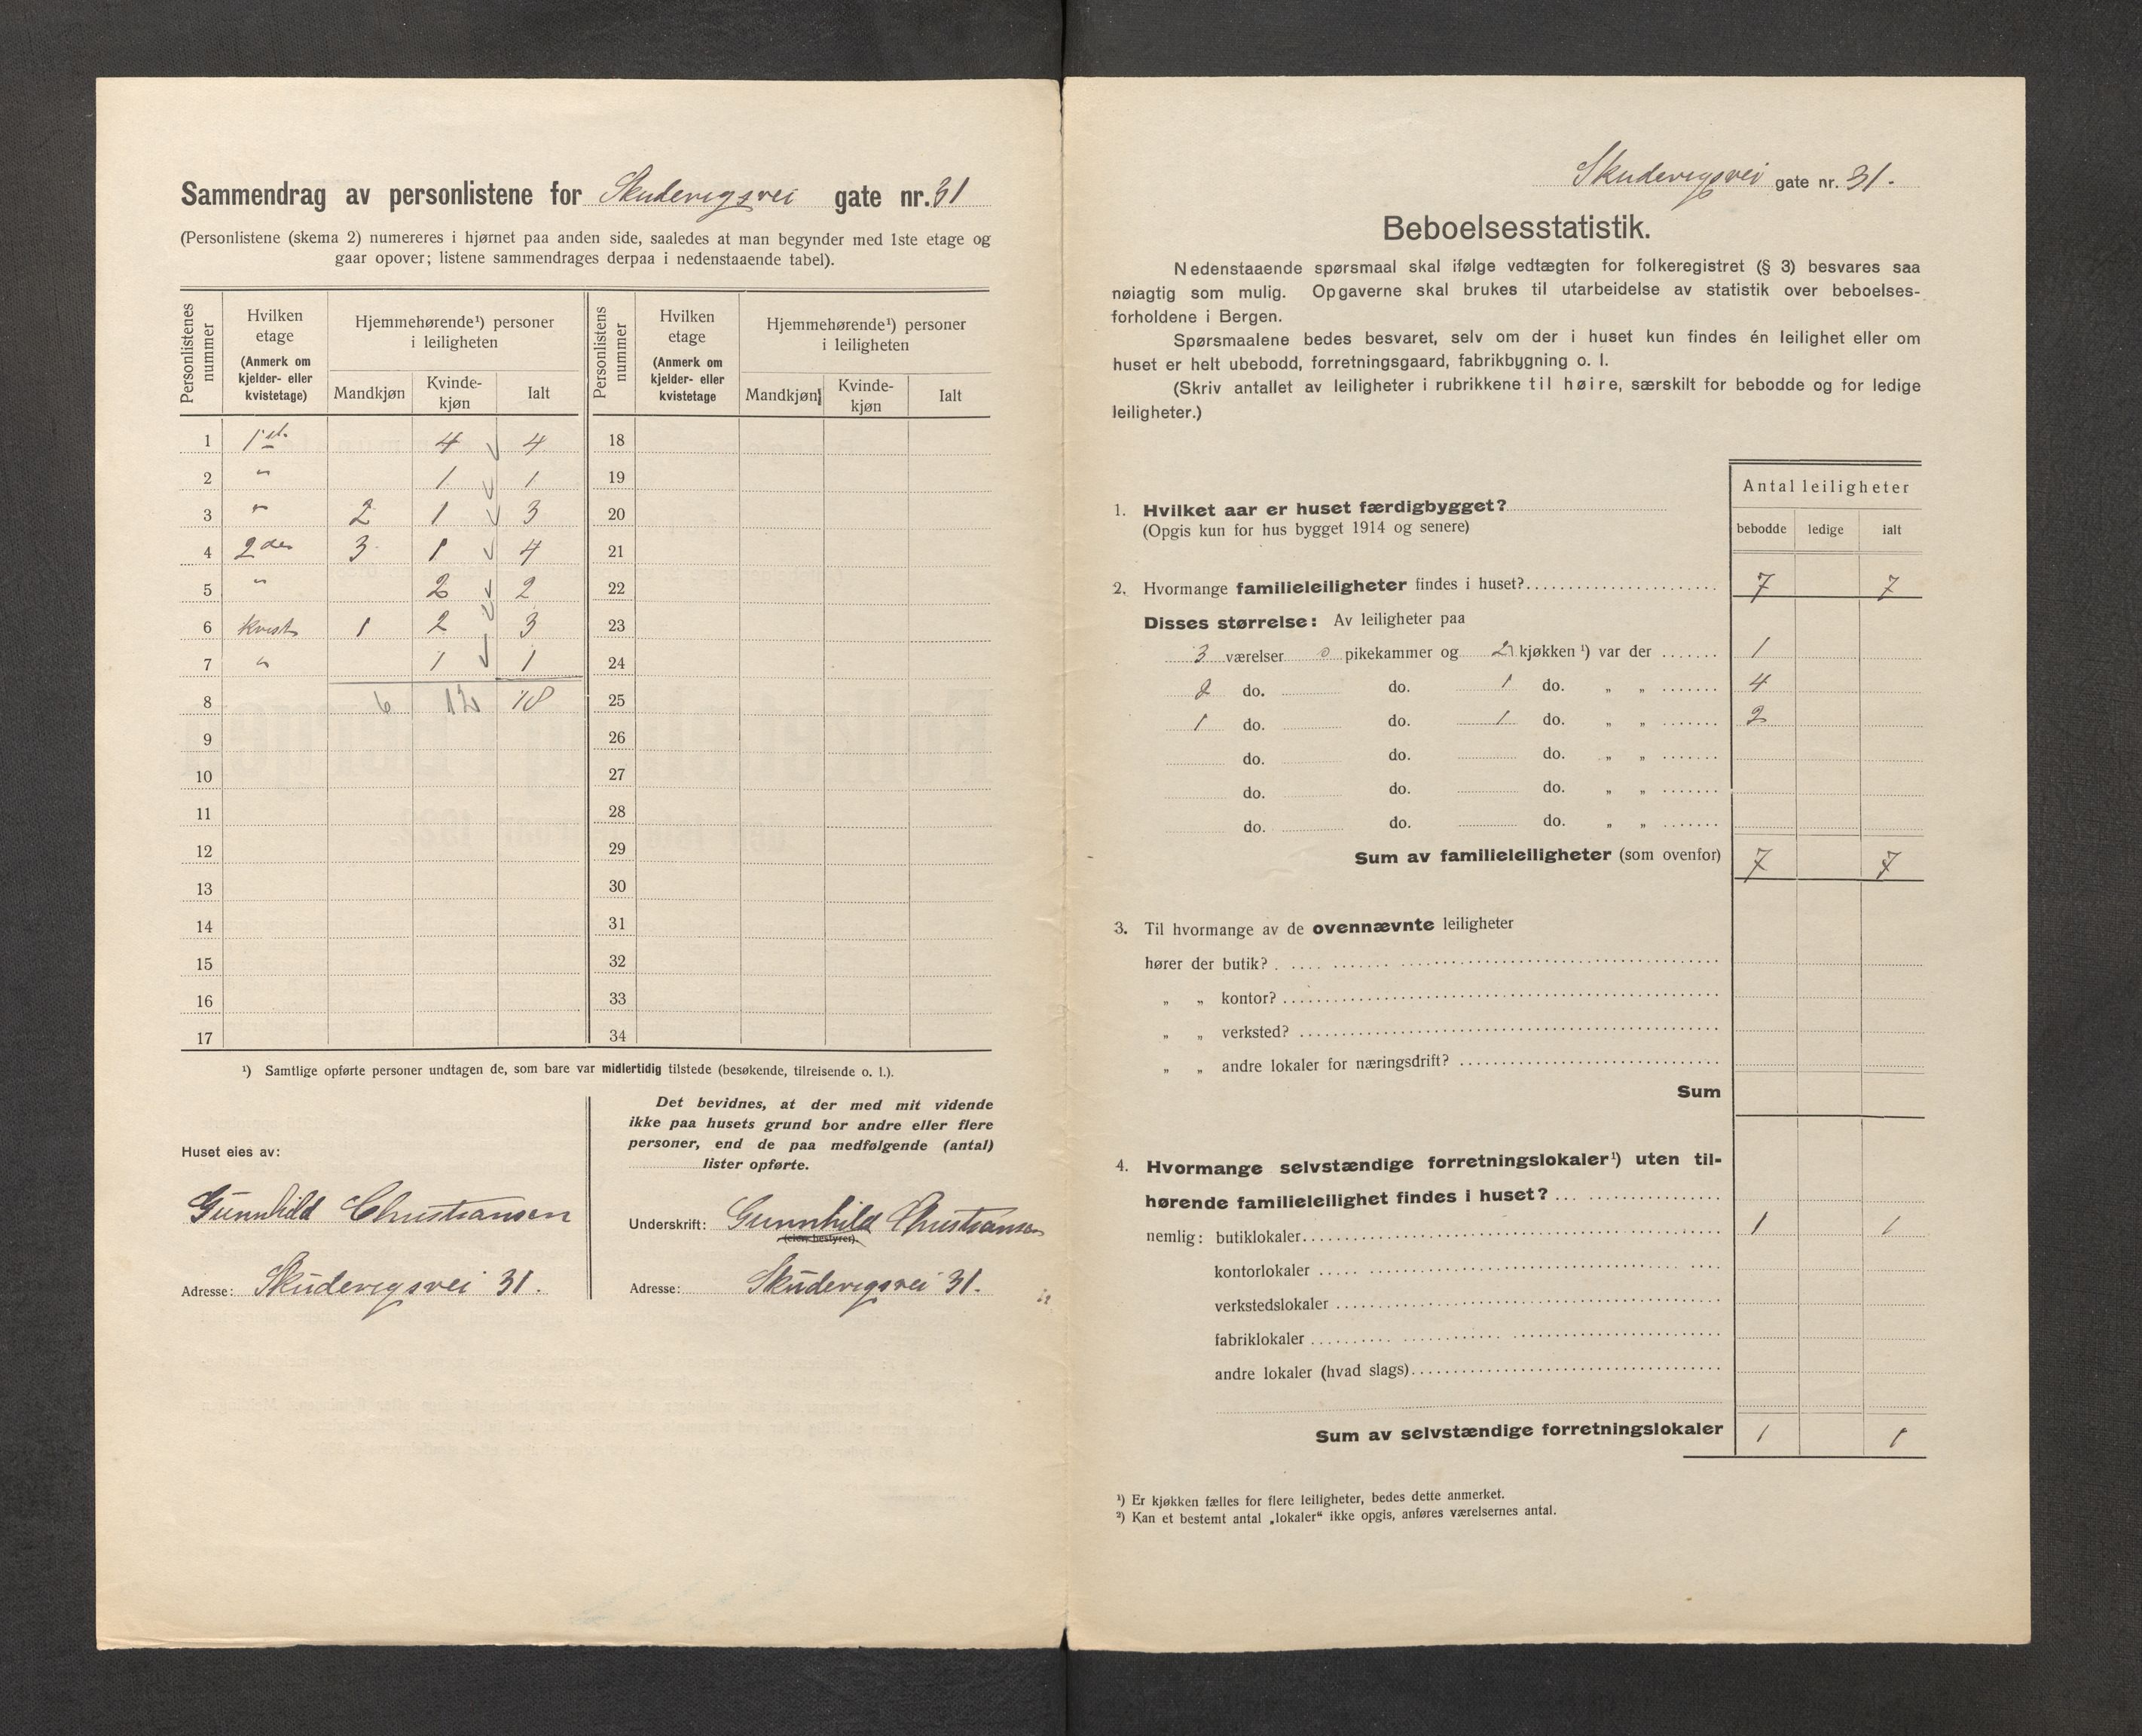 Sammendrag av personlistene for Skuderigsvei gate nr. 31
(Personlistene (skema 2) numereres i hjørnet paa anden side, saaledes at man begynder med 1ste etage og
gaar opover; listene sammendrages derpaa i nedenstaaende tabel).
Personlistenes nummer
Hvilken etage (Anmerk om kjelder- eller kvistetage)
Hjemmehørende¹) personer i leiligheten
Mandkjøn Kvinde-kjøn Ialt
Personlistens nummer
Hvilken etage (Anmerk om kjelder- eller kvistetage
Hjemmehørende¹) personer i leiligheten
Mandkjøn Kvinde-kjøn Ialt
1 1ste 4 4 18
2 " 1 1 19
3 " 2 1 3 20
4 2den 3 1 4 21
5 " 2 2 22
6 kvist 1 2 3 23
7 " 1 1 24
8 6 12 18 25
9 26
10 27
11 28
12 29
13 30
14 31
15 32
16 33
17 34
¹) Samtlige opførte personer undtagen de, som bare var midlertidig tilstede (besøkende, tilreisende o. l.).
Huset eies av:
Gunnhild Christiansen
Adresse: Skuderigsvei 31.
Det bevidnes, at der med mit vidende
ikke paa husets grund bor andre eller flere
personer, end de paa medfølgende (antal)
lister opførte.
Underskrift: Gunnhild Christiansen
(eier, bestyrer).
Adresse: Skuderigsvei 31.
Skuderigsvei gate nr. 31.
Beboelsesstatistik.
Nedenstaaende spørsmaal skal ifølge vedtægten for folkeregistret (§ 3) besvares saa
nøiagtig som mulig. Opgaverne skal brukes til utarbeidelse av statistik over beboelses-
forholdene i Bergen.
Spørsmaalene bedes besvaret, selv om der i huset kun findes én leilighet eller om
huset er helt ubebodd, forretningsgaard, fabrikbygning o. l.
(Skriv antallet av leiligheter i rubrikkene til høire, særskilt for bebodde og for ledige
leiligheter.)
Antal leiligheter
bebodde ledige ialt
1. Hvilket aar er huset færdigbygget?
(Opgis kun for hus bygget 1914 og senere)
2. Hvormange familieleiligheter findes i huset? 7 7
Disses størrelse: Av leiligheter paa
3 værelser 0 pikekammer og 2 kjøkken ¹) var der 1
2 do. do. 1 do. " " 4
1 do. do. 1 do. " " 2
do. do. do. " "
do. do. do. " "
do. do. do. " "
Sum av familieleiligheter (som ovenfor) 7 7
3. Til hvormange av de ovennævnte leiligheter
hører der butik?
" " kontor?
" " verksted?
" " andre lokaler for næringsdrift?
Sum
4. Hvormange selvstændige forretningslokaler¹) uten til-
hørende familieleilighet findes i huset?
nemlig: butiklokaler 1 1
kontorlokaler
verkstedslokaler
fabriklokaler
andre lokaler (hvad slags)
Sum av selvstændige forretningslokaler 1 1
¹) Er kjøkken fælles for flere leiligheter, bedes dette anmerket.
²) Kan et bestemt antal „lokaler“ ikke opgis, anføres værelsernes antal.